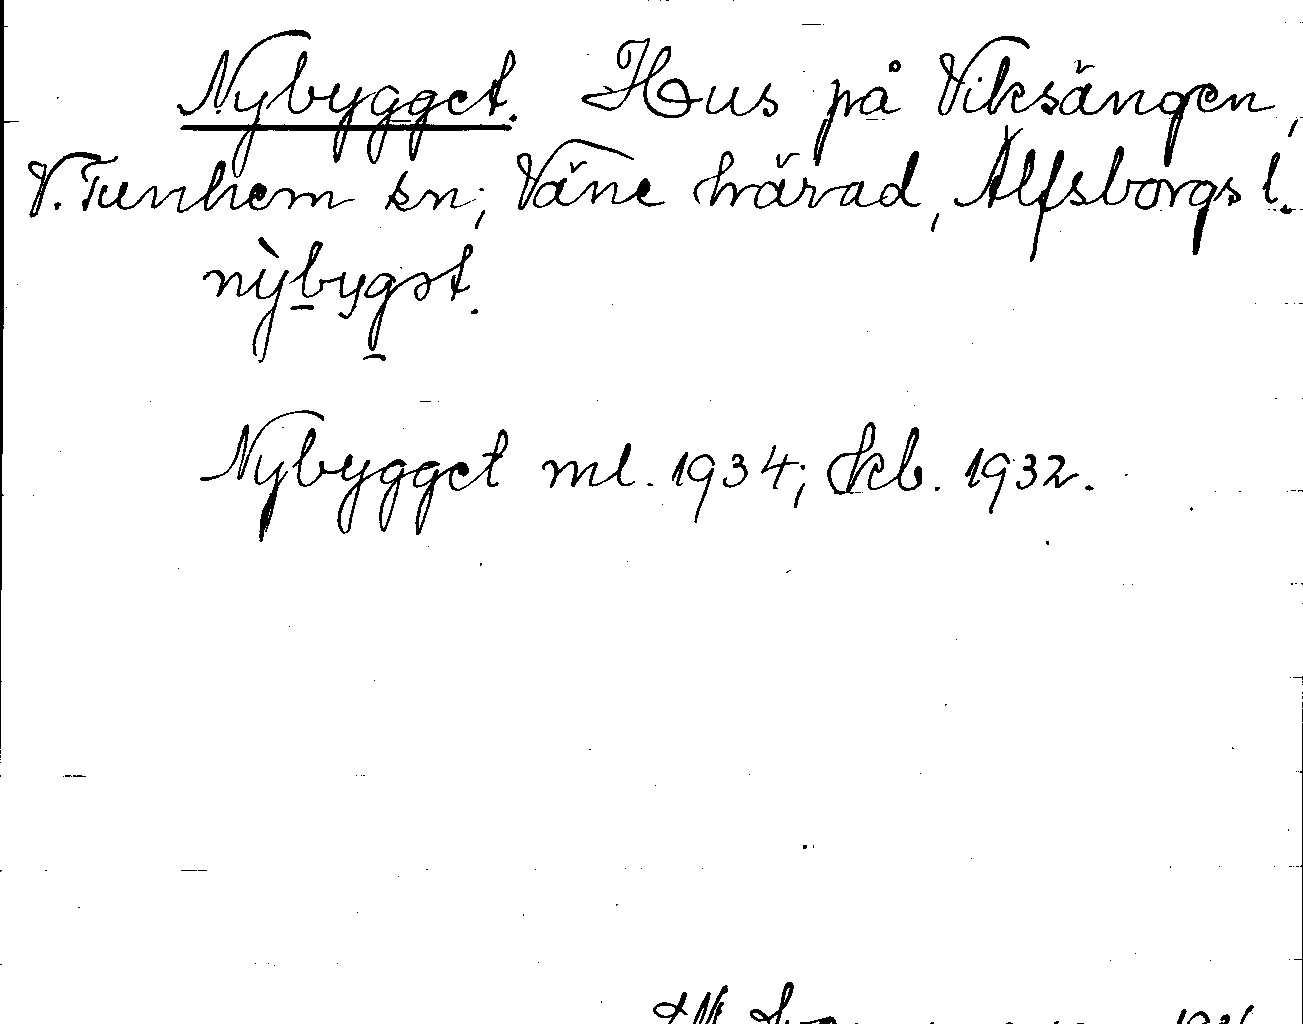 Nybygget. Hus på Viksängen,
V. Tunhem sn; Väne härad, Älfsborgs l.
nỳbygət.
Nybygget ml. 1934; Skb. 1932.